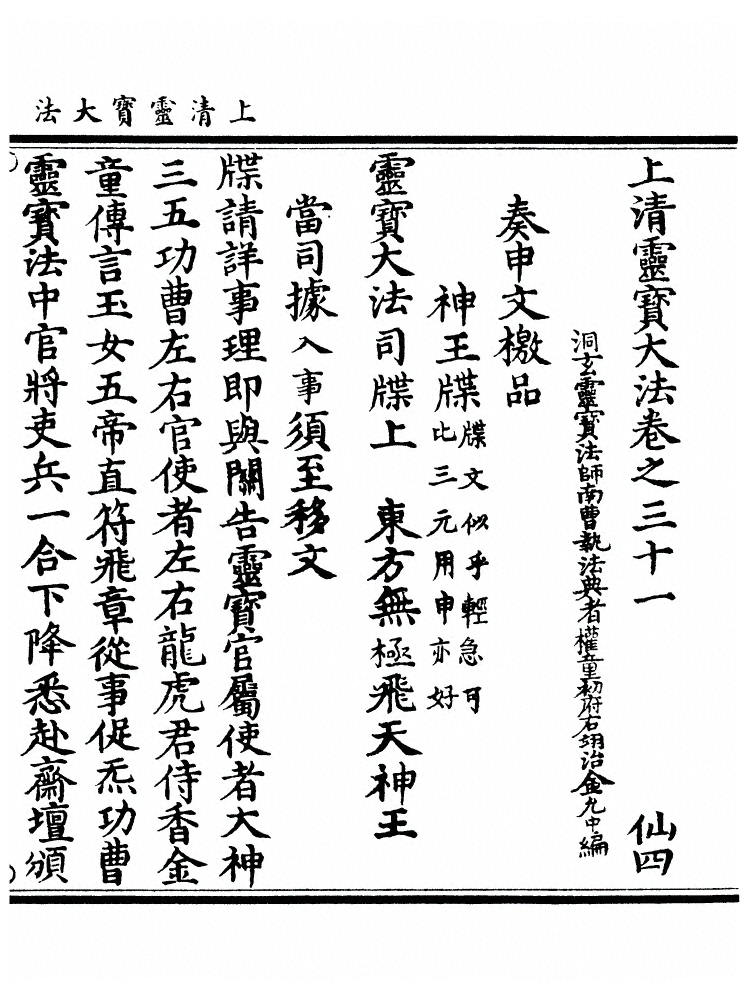 上清靈寶大法
上清靈寶大法卷之三十一 仙四
洞玄靈寶法師南曹執法典者權童初府右翊治金允中編
奏申文檄品
神王牒牒文似乎輕急可
比三元用申亦好
靈寶大法司牒上 東方無極飛天神王
當司據入事須至移文
牒請詳事理即與關告靈寶官屬使者大神
三五功曹左右官使者左右龍虎君侍香金
童傳言玉女五帝直符飛章從事促炁功曹
靈寶法中官將吏兵一合下降悉赴齋壇頒